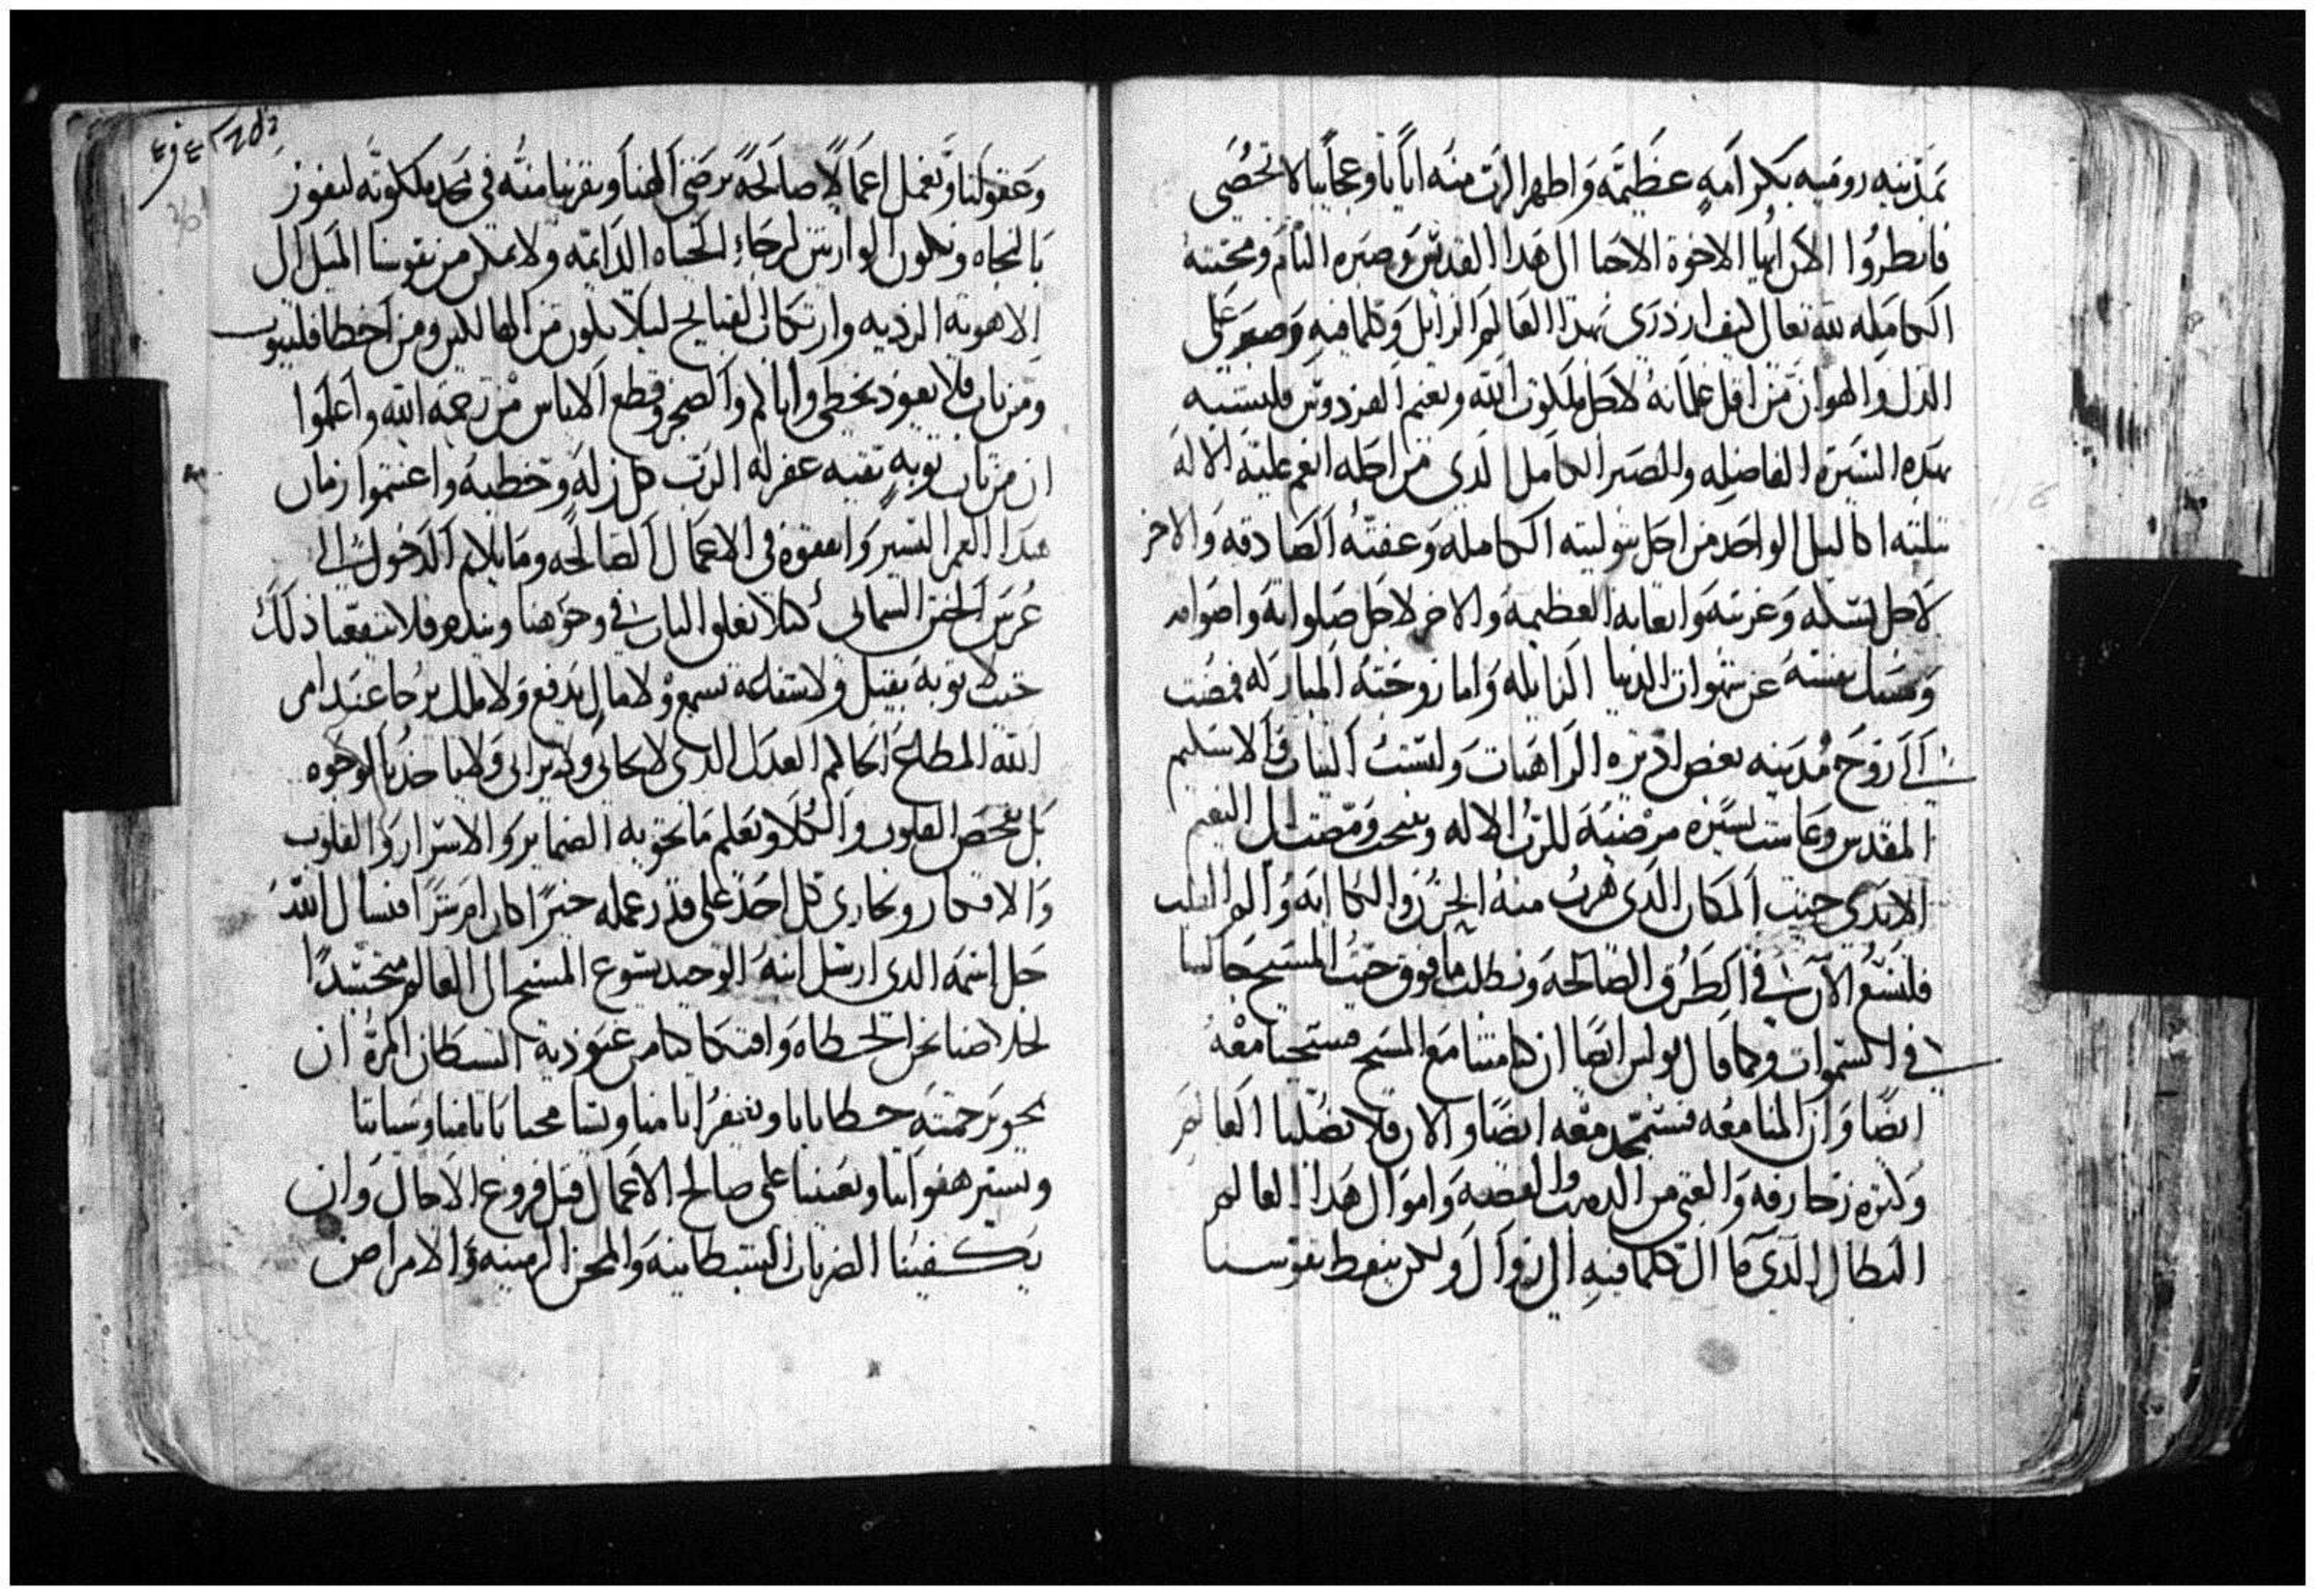 بمدينه روميه بكرامه عظيمه واظهر الرب منه اياتا وعجايبا لا تحصى
فانظروا الان ايها الاخوة الاحبا الى هدا القديس وصبره التام ومحبته
الكامله لله تعالى كيف ازدرى بهدا العالم الزايل وكلما فيه وصبر على
الدل والهوان من اقل غلمانه لاجل ملكوت الله ونعيم الفردوس فلنتشبه
بهده السيرة الفاضله والصبر الكامل الدى من اجله انعم عليه الاله
بثلثه اكاليل الواحد من اجل بتوليته الكامله وعفته الصادقه والاخر
لاجل نسكه وغربته واتعابه العظيمه والاخر لاجل صلواته واصوامه
ومسك نفسه عن شهوات الدنيا الزايله واما زوجته المباركه فمضت
الى مدينه بعض اديرة الراهبات ولبست الثياب والاسكيم
المقدس وعاشت بسيره مرضيه للرب الاله وتنيحت ومضت الى النعيم
الابدى حيث المكان الدى هرب منه الحزن والكاابه والم القلب
فلنسع الان فى الطرق الصالحه ونطلب ما فوق حيث المسيح جالسا
فى السموات وكما قال بولس ايضا ان كنا متنا مع المسيح فسنحيا معه
ايضا وان المنا معه فسنتمجد معه ايضا والان فلا تضلنا العالم
وكثرة زخارفه والغنى من الدهب والفضه واموال هدا العالم
البطال الدى مآل كلما فيه الى زوال ولكن نيقظ نفوسنا
وعقولنا ونعمل اعمالا صالحة ترضى الهنا وتقربنا منه فى مجد ملكوته لنفوز
بالنجاه ونكون الوارتين لرجاء الحياه الدايمه ولا نمكن من نفوسنا الميل الى
الاهويه الرديه وارتكاب القبايح ليلا نكون من الهالكين ومن اخطا فليتوب
ومن تاب فلا يعود يخطى واياكم والضجر وقطع الاياس من رحمة الله واعلموا
ان من تاب توبه نقيه غفر له الرب كل زله وخطيه واغتنموا زمان
هدا العمر اليسير وانفقوه فى الاعمال الصالحه وما يلايم الدخول الى
عرس الختن السمائى كيلا يغلق الباب فى وجوهنا ونندم فلا ينفعنا ذلك
حيث لا توبة تقبل ولا شفاعة تسمع ولا مال يدفع ولا ملك يرجا عند امر
الله المطاع الحاكم العدل الدى لا يحابى ولا يرائى ولا ياخد بالوجوه
بل يفحص القلوب والكلا ويعلم ما تحويه الضماير والاسرار والقلوب
والافكار ويجازى كل احد على قدر عمله خيرا كان ام شرا فنسال الله
جل اسمه الدى ارسل ابنه الوحيد يسوع المسيح الى العالم متجسدا
لخلاصنا نحن الخطاه وافتكاكنا من عبوديه الشيطان المرة ان
يمحو برحمته خطايانا ويغفر اتامنا ويسامحنا باتامنا وسياتنا
ويستر هفواتنا ويعيننا على صالح الاعمال قبل فروغ الاجال وان
يكفينا الضربات الشيطانيه والمحن الزمنيه والامراض